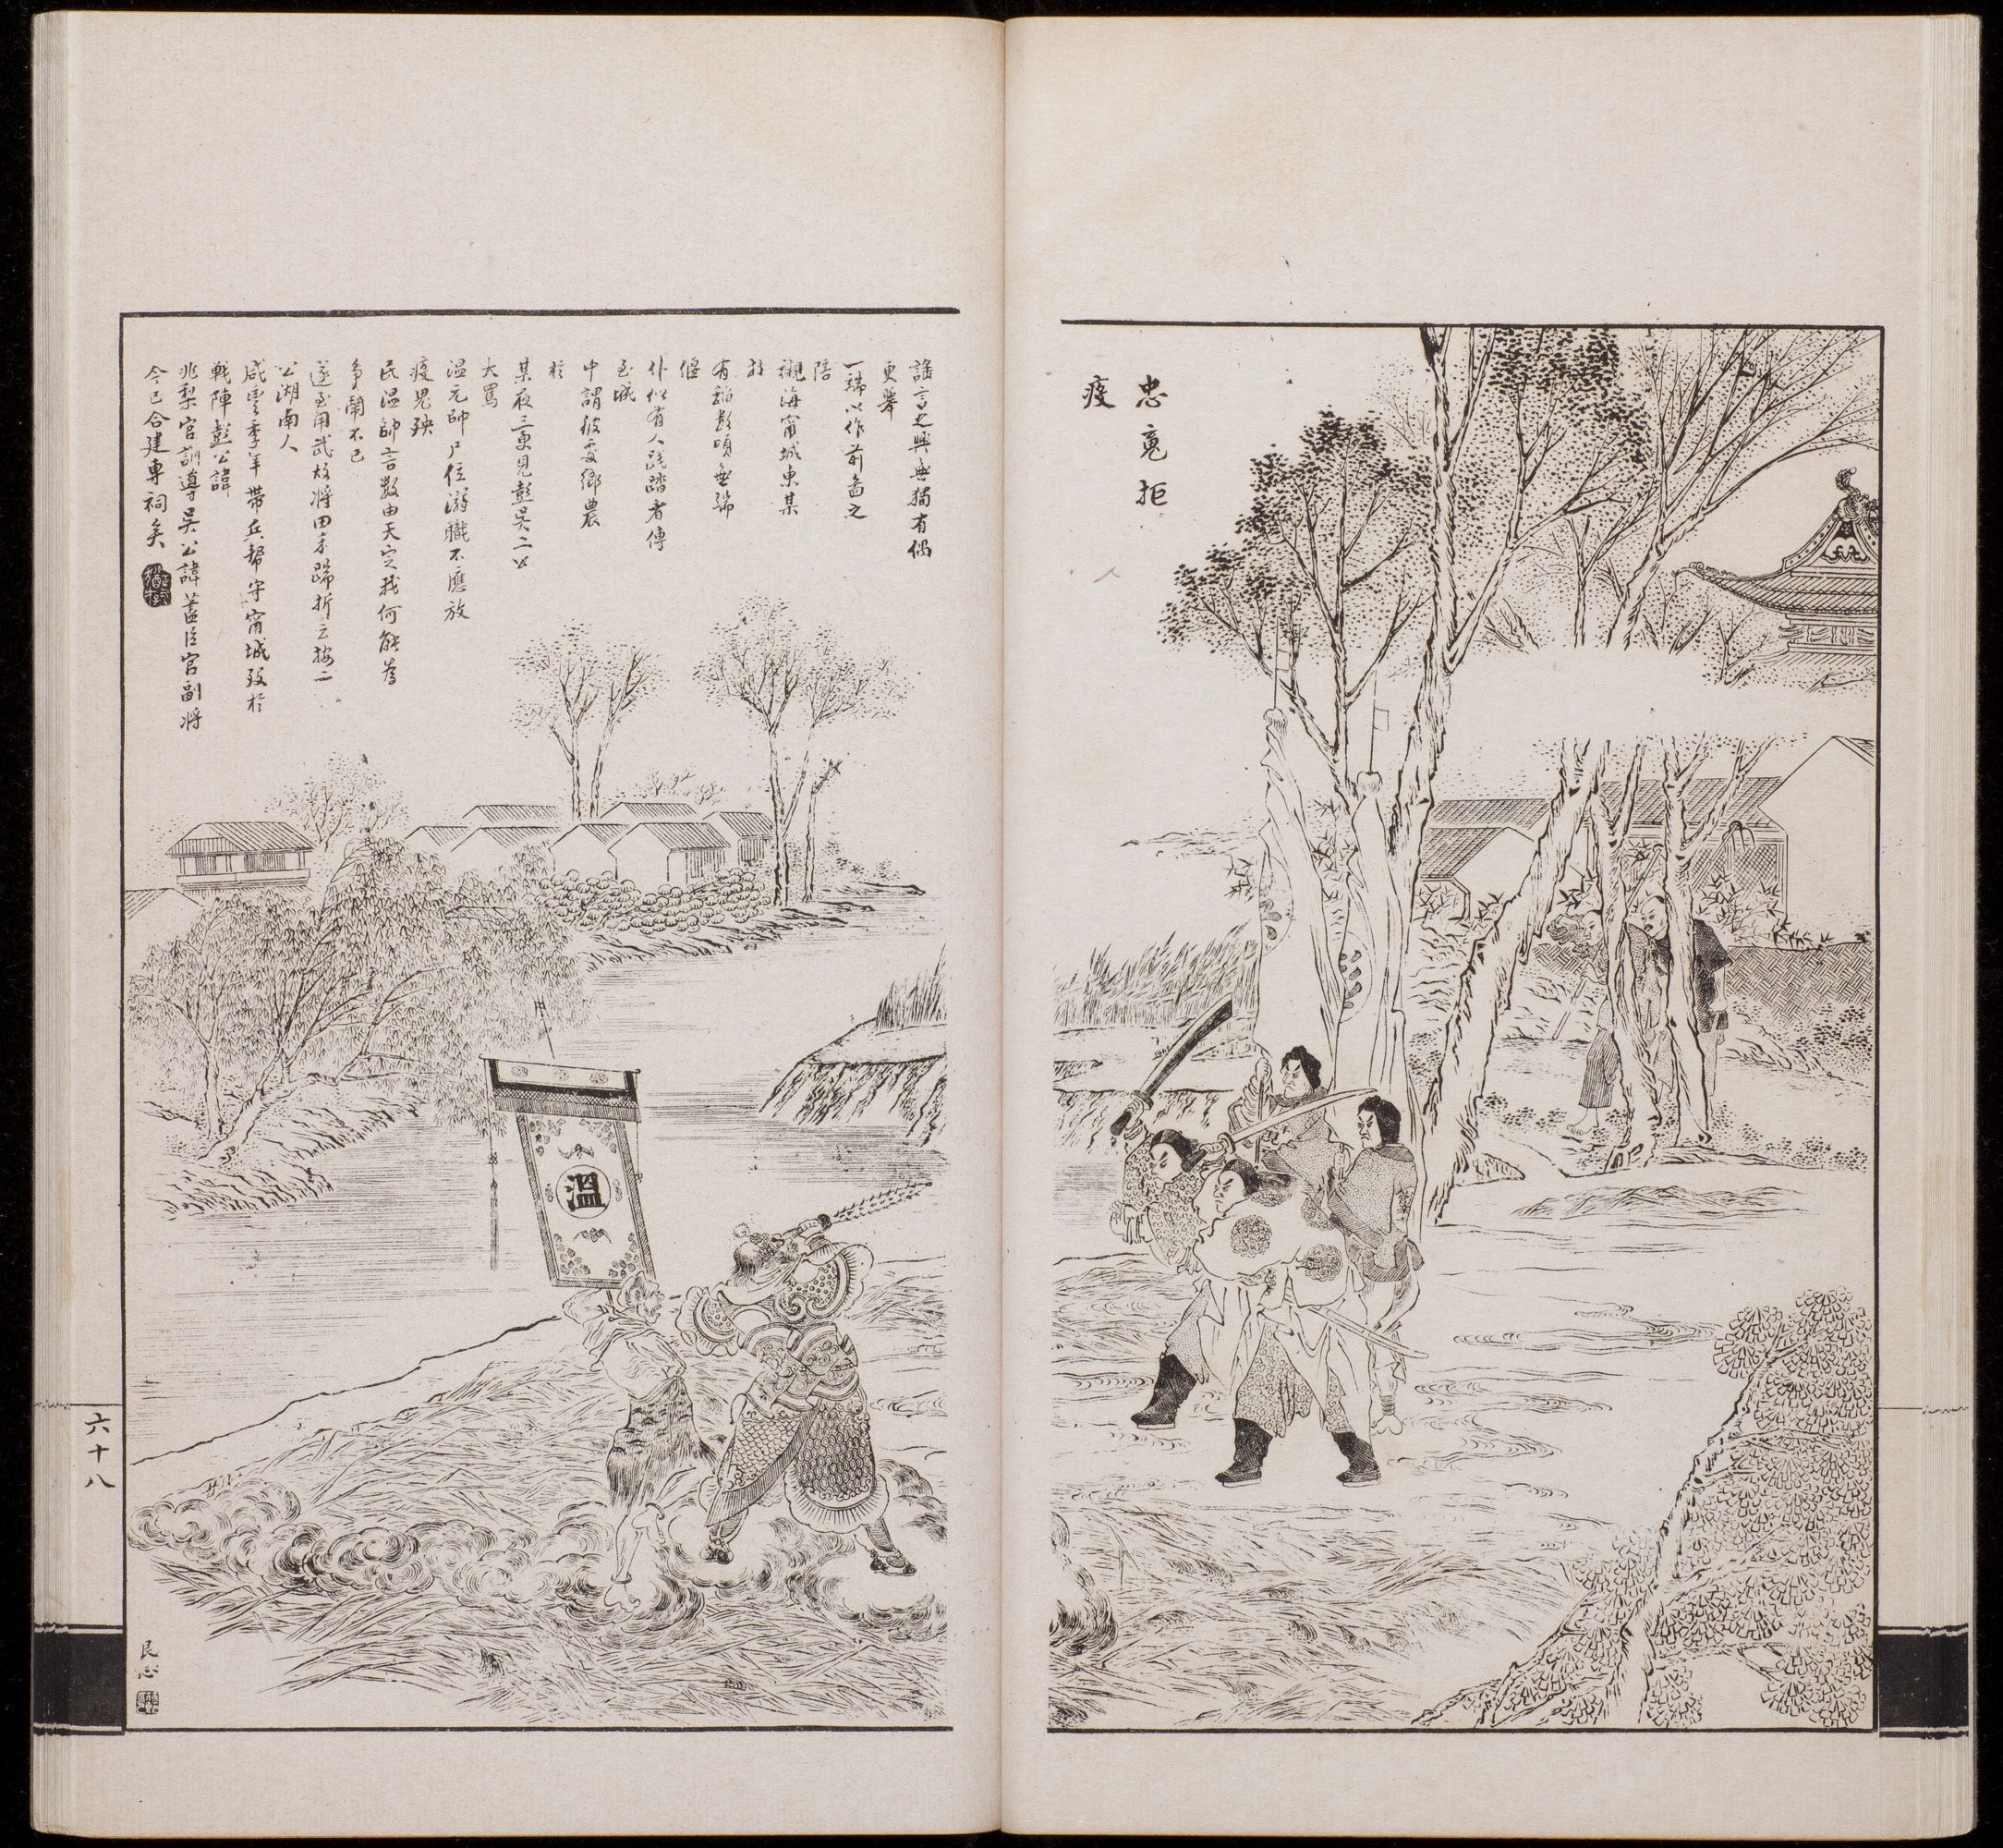 忠寃拒
疫
謠言之興無獨有偶
更舉
一端以作前圖之
陪
襯海甯城東某
有稻數頃無端
偃
仆似有人踐踏者傳
至城
中謂彼處鄉農
於
某夜三更見彭吳二公
大罵
温元帥尸位溺職不應放
疫鬼殃
民温帥言數由天定我何能為
爭鬧不已
遂至用武故將田禾踹折云按二
公湖南人
咸豐季年帶兵帮守甯城歿於
戰陣彭公諱
兆梨官訓導吳公諱藎臣官副將
今已合建專祠矣
溫
艮心
六十八